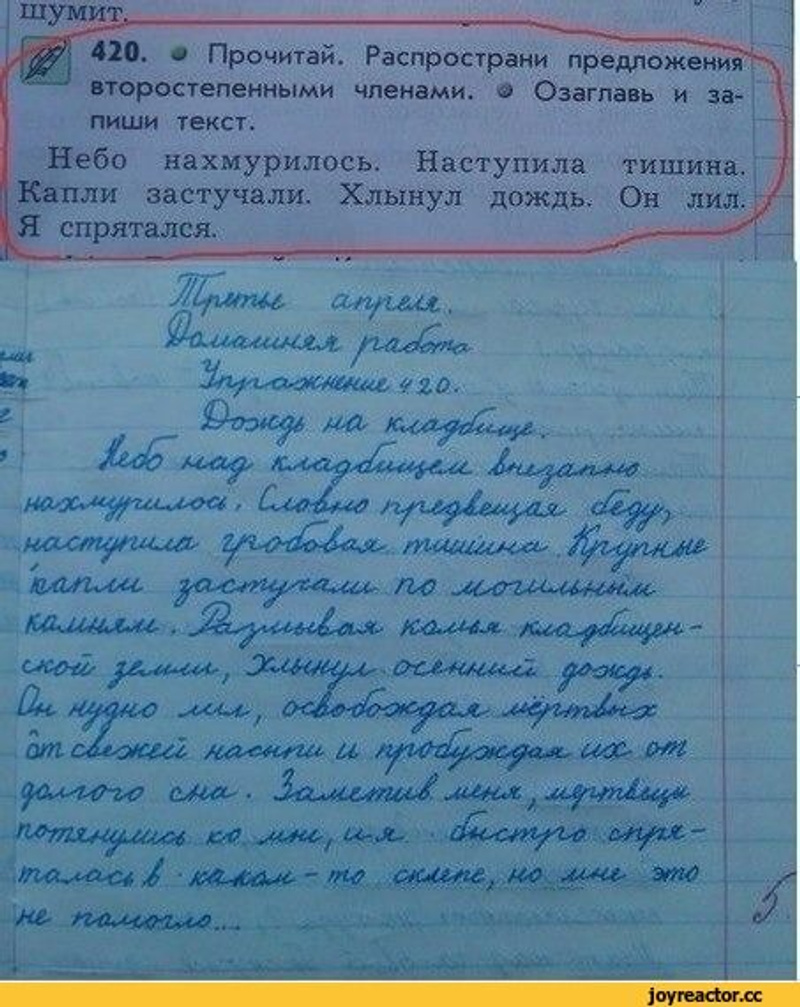 шумит.
420. • Прочитай. Распространи предложения
второстепенными членами. • Озаглавь и за-
пиши текст.
Небо нахмурилось. Наступила тишина.
Капли застучали. Хлынул дождь. Он лил.
Я спрятался.
Третье апреля.
Домашняя работа
Упражнение 420.
Дождь на кладбище.
Небо над кладбищем внезапно
нахмурилось. Словно предвещая беду,
наступила гробовая тишина. Крупные
капли застучали по могильным
камням. Размывая комья кладбищен-
ской земли, хлынул осенний дождь.
Он нудно лил, освобождая мёртвых
от свежей насыпи и пробуждая их от
долгого сна. Заметив меня, мертвецы
потянулись ко мне, и я быстро спря-
талась в каком-то склепе, но мне это
не помогло...
5
joyreactor.cc